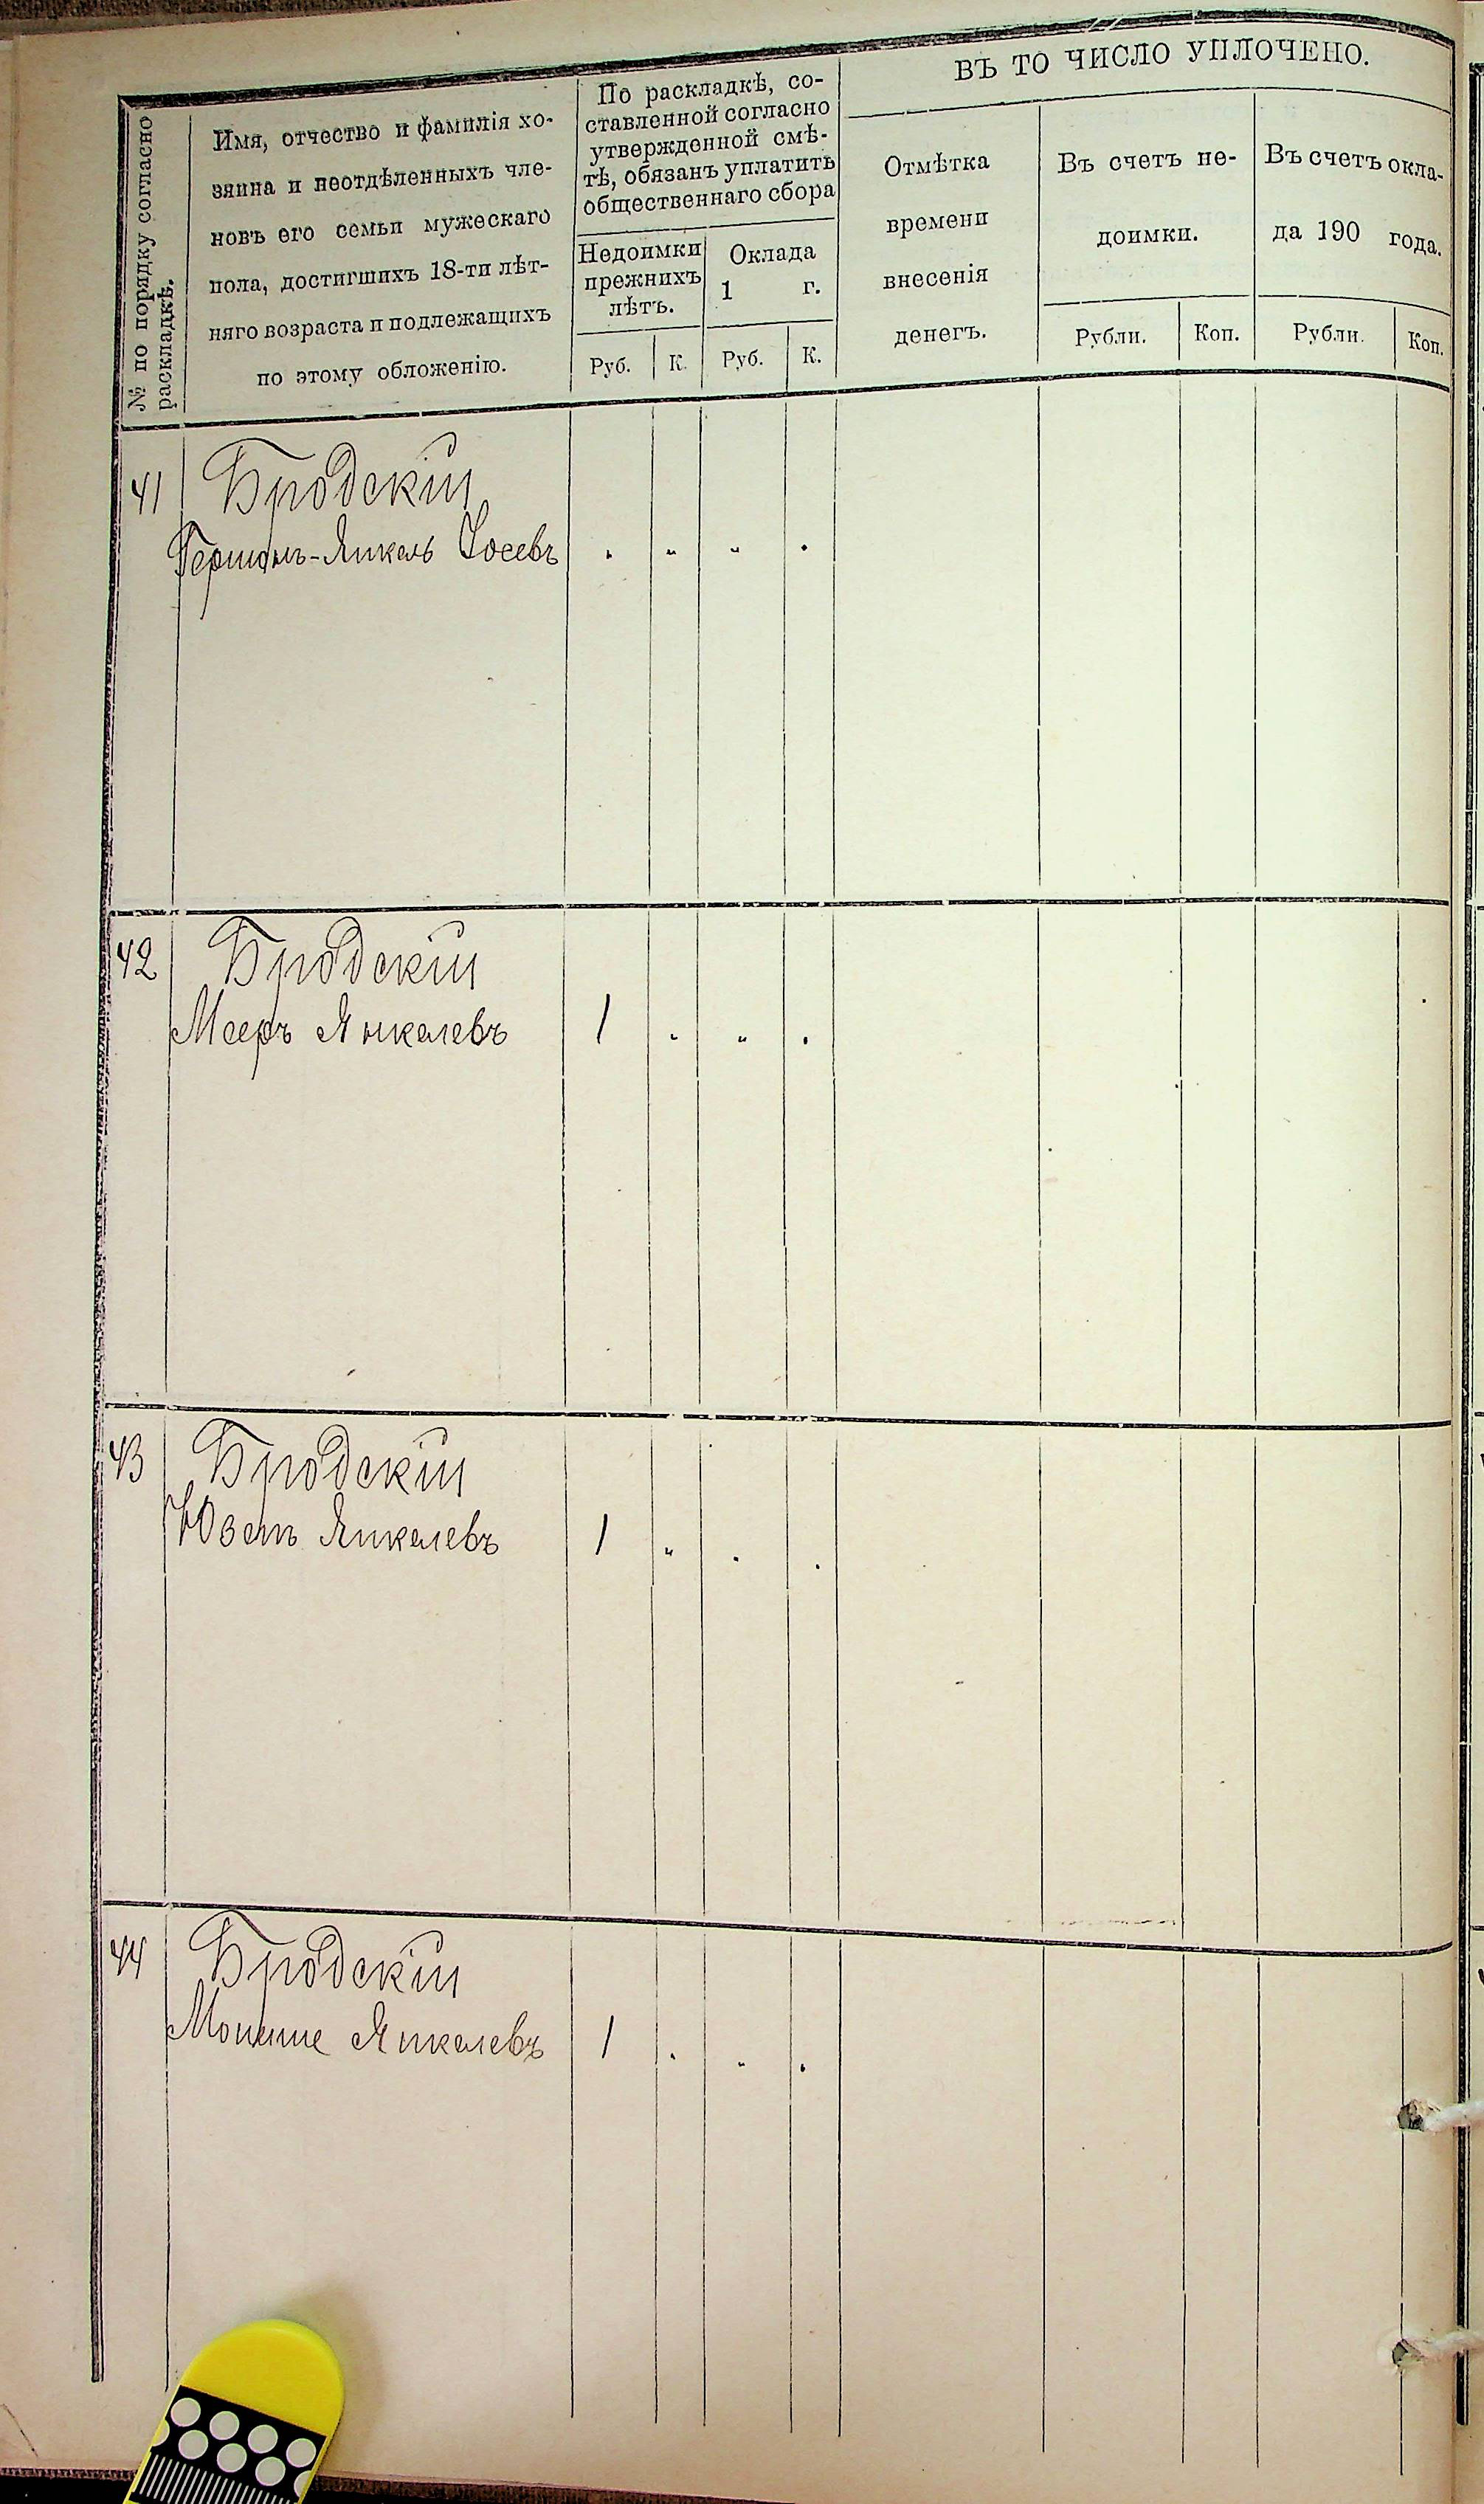 № по порядку согласно
раскладкѣ.
Имя, отчество и фамилія хо-
зяина и неотдѣленныхъ чле-
новъ его семьи мужескаго
пола, достигшихъ 18-ти лѣт-
няго возраста и подлежащихъ
по этому обложенію.
По раскладкѣ, со-
ставленной согласно
утвержденной смѣ-
тѣ, обязанъ уплатить
общественнаго сбора
Недоимки
прежнихъ
лѣтъ.
Оклада
1 г.
Руб. К. Руб. К.
ВЪ ТО ЧИСЛО УПЛОЧЕНО.
Отмѣтка
времени
внесенія
денегъ.
Въ счетъ не-
доимки.
Въ счетъ окла-
да 190 года.
Рубли. Коп. Рубли. Коп.
41 Бродскій
Гершонъ-Янкель Іосевъ
42 Бродскій
Мееръ Янкелевъ 1
43 Бродскій
Янкелевъ 1
44 Бродскій
Янкелевъ 1